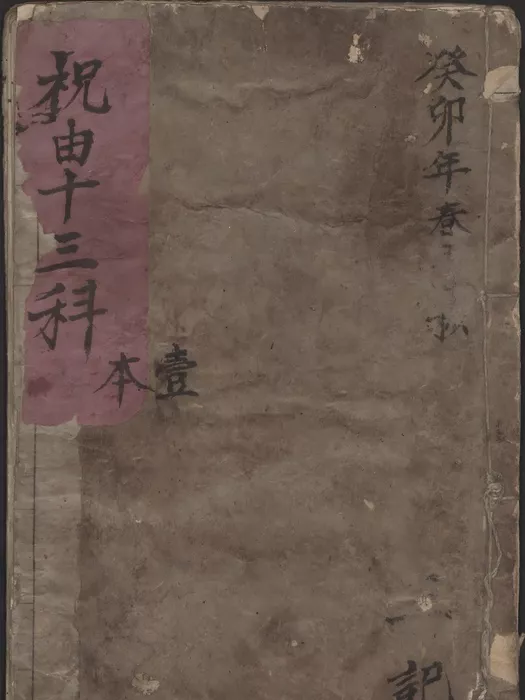 癸卯年春
壹本
祝由十三科
記